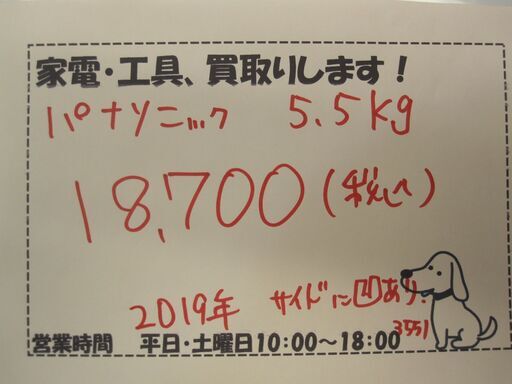 家電・工具、買取りします！
パナソニック 5.5kg
18,700(税込)
2019年 サイドに凹あり.
3551
営業時間 平日・土曜日10:00～18:00